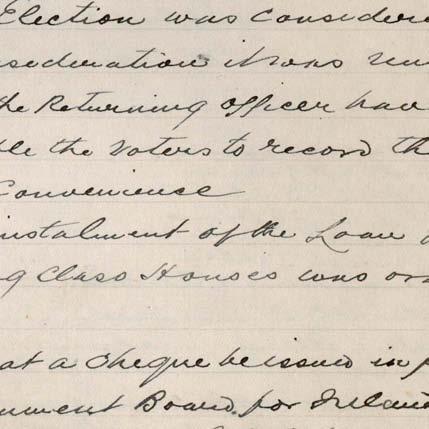 Election was considere
sideration it was
the Returning officer hav
ble the Voters to record th
Convenience
nstalment of the Loan
g Class Houses was or
at a cheque be issued in p
nment Board for Ireland